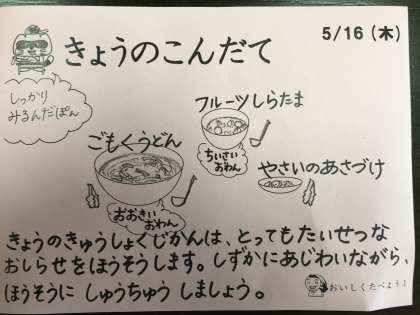 5/16 (木)
きょうのこんだて
しっかり
みるんだぽん
フルーツしらたま
ちいさい
おわん
ごもくうどん
おおきい
おわん
やさいのあさづけ
きょうのきゅうしょくじかんは、とってもたいせつな
おしらせをほうそうします。しずかにあじわいながら、
ほうそうに しゅうちゅう しましょう。
おいしくたべよう!